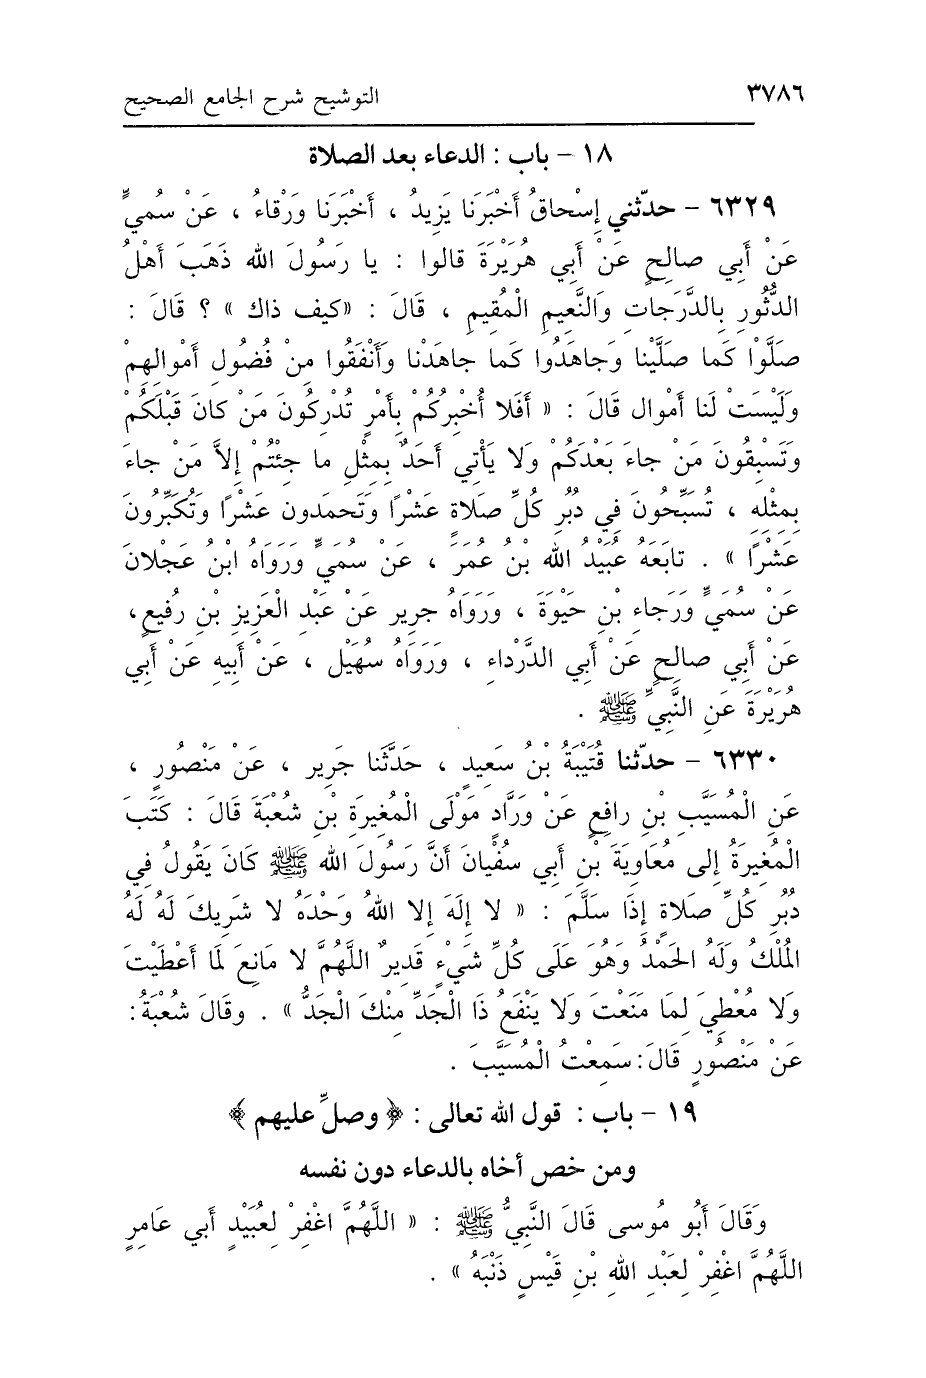 ٣٧٨٦ التوشيح شرح الجامع الصحيح
١٨ - باب : الدعاء بعد الصلاة
٦٣٢٩ - حدّثني إِسْحاقُ أَخْبَرَنَا يَزِيدُ ، أَخْبَرَنَا وَرْقاءُ ، عَنْ سُمَيٍّ
عَنْ أَبي صالحٍ عَنْ أَبي هُرَيْرَةَ قالوا : يا رَسُولَ الله ذَهَبَ أَهْلُ
الدُّثُورِ بِالدَّرَجاتِ وَالنَّعِيمِ الْمُقِيمِ ، قَالَ : «كيف ذاك » ؟ قَالَ :
صَلَّوْا كَما صَلَّيْنا وَجاهَدُوا كَما جاهَدْنا وأَنْفَقُوا مِنْ فُضُولِ أَمْوالِهِمْ
وَلَيْسَتْ لَنا أَمْوال قَالَ : « أَفَلا أُخْبِرُكُمْ بِأَمْرٍ تُدْرِكُونَ مَنْ كانَ قَبْلَكُمْ
وَتَسْبِقُونَ مَنْ جاءَ بَعْدَكُمْ وَلا يَأْتي أَحَدٌ بِمِثْلِ ما جِئْتُمْ إِلاَّ مَنْ جاءَ
بِمِثْلِهِ ، تُسَبِّحُونَ فِي دُبُرِ كُلِّ صَلاةٍ عَشْرًا وَتَحمَدون عَشْرًا وَتُكَبِّرُونَ
عَشْرًا » . تابَعَهُ عُبَيْدُ الله بْنُ عُمَرَ ، عَنْ سُمَيٍّ وَرَوَاهُ ابْنُ عَجْلانَ
عَنْ سُمَيٍّ وَرَجاءِ بْنِ حَيْوَةَ ، وَرَوَاهُ جرير عَنْ عَبْدِ الْعَزِيزِ بْنِ رُفيعٍ،
عَنْ أَبي صالحٍ عَنْ أَبي الدَّرْداءِ ، وَرَوَاهُ سُهَيْل ، عَنْ أَبِيهِ عَنْ أَبي
هُرَيْرَةَ عَنِ النَّبيِّ ﷺ .
٦٣٣٠ - حدّثنا قُتَيْبَةُ بْنُ سَعيدٍ ، حَدَّثَنا جَرِير ، عَنْ مَنْصُورٍ ،
عَنِ الْمُسَيَّبِ بْنِ رافِعٍ عَنْ وَرَّادٍ مَوْلَى الْمُغِيرَةِ بْنِ شُعْبَةَ قَالَ : كَتَبَ
الْمُغِيرَةُ إلى مُعَاوِيَةَ بْنِ أَبي سُفْيانَ أَنَّ رَسُولَ الله ﷺ كَانَ يَقُولُ فِي
دُبُرِ كُلِّ صَلاةٍ إِذَا سَلَّمَ : « لا إِلَهَ إلا اللهُ وَحْدَهُ لا شَرِيكَ لَهُ لَهُ
المُلْكُ وَلَهُ الحَمْدُ وَهُوَ عَلَى كُلِّ شَيْءٍ قَدِيرٌ اللَّهُمَّ لا مَانِعَ لمَا أَعْطَيْتَ
وَلا مُعْطِيَ لِمَا مَنَعْتَ وَلا يَنْفَعُ ذَا الْجَدِّ مِنْكَ الْجَدُّ » . وقَالَ شُعْبَةُ:
عَنْ مَنْصُورٍ قَالَ: سَمِعْتُ الْمُسَيَّبَ .
١٩ - باب : قول الله تعالى : ﴿ وصلِّ عليهم ﴾
ومن خص أخاه بالدعاء دون نفسه
وَقَالَ أَبُو مُوسى قَالَ النَّبِيُّ ﷺ : « اللَّهُمَّ اغْفِرْ لِعُبَيْدٍ أَبي عَامِرٍ
اللَّهُمَّ اغْفِرْ لِعَبْدِ الله بْنِ قَيْسٍ ذَنْبَهُ » .